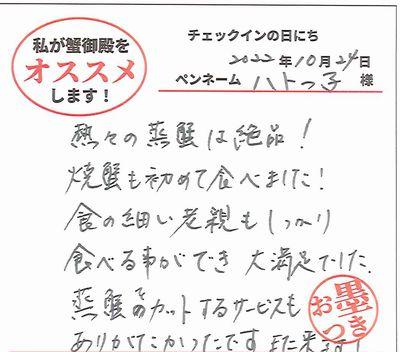 私が蟹御殿を
オススメ
します!
チェックインの日にち
2022年10月24日
ペンネーム ハトっ子 様
熱々の蒸蟹は絶品!
焼蟹も初めて食べました!
食の細い老親もしっかり
食べる事ができ 大満足でした。
蒸蟹のカットするサービスも
ありがたかったです また来ます!
お墨つき